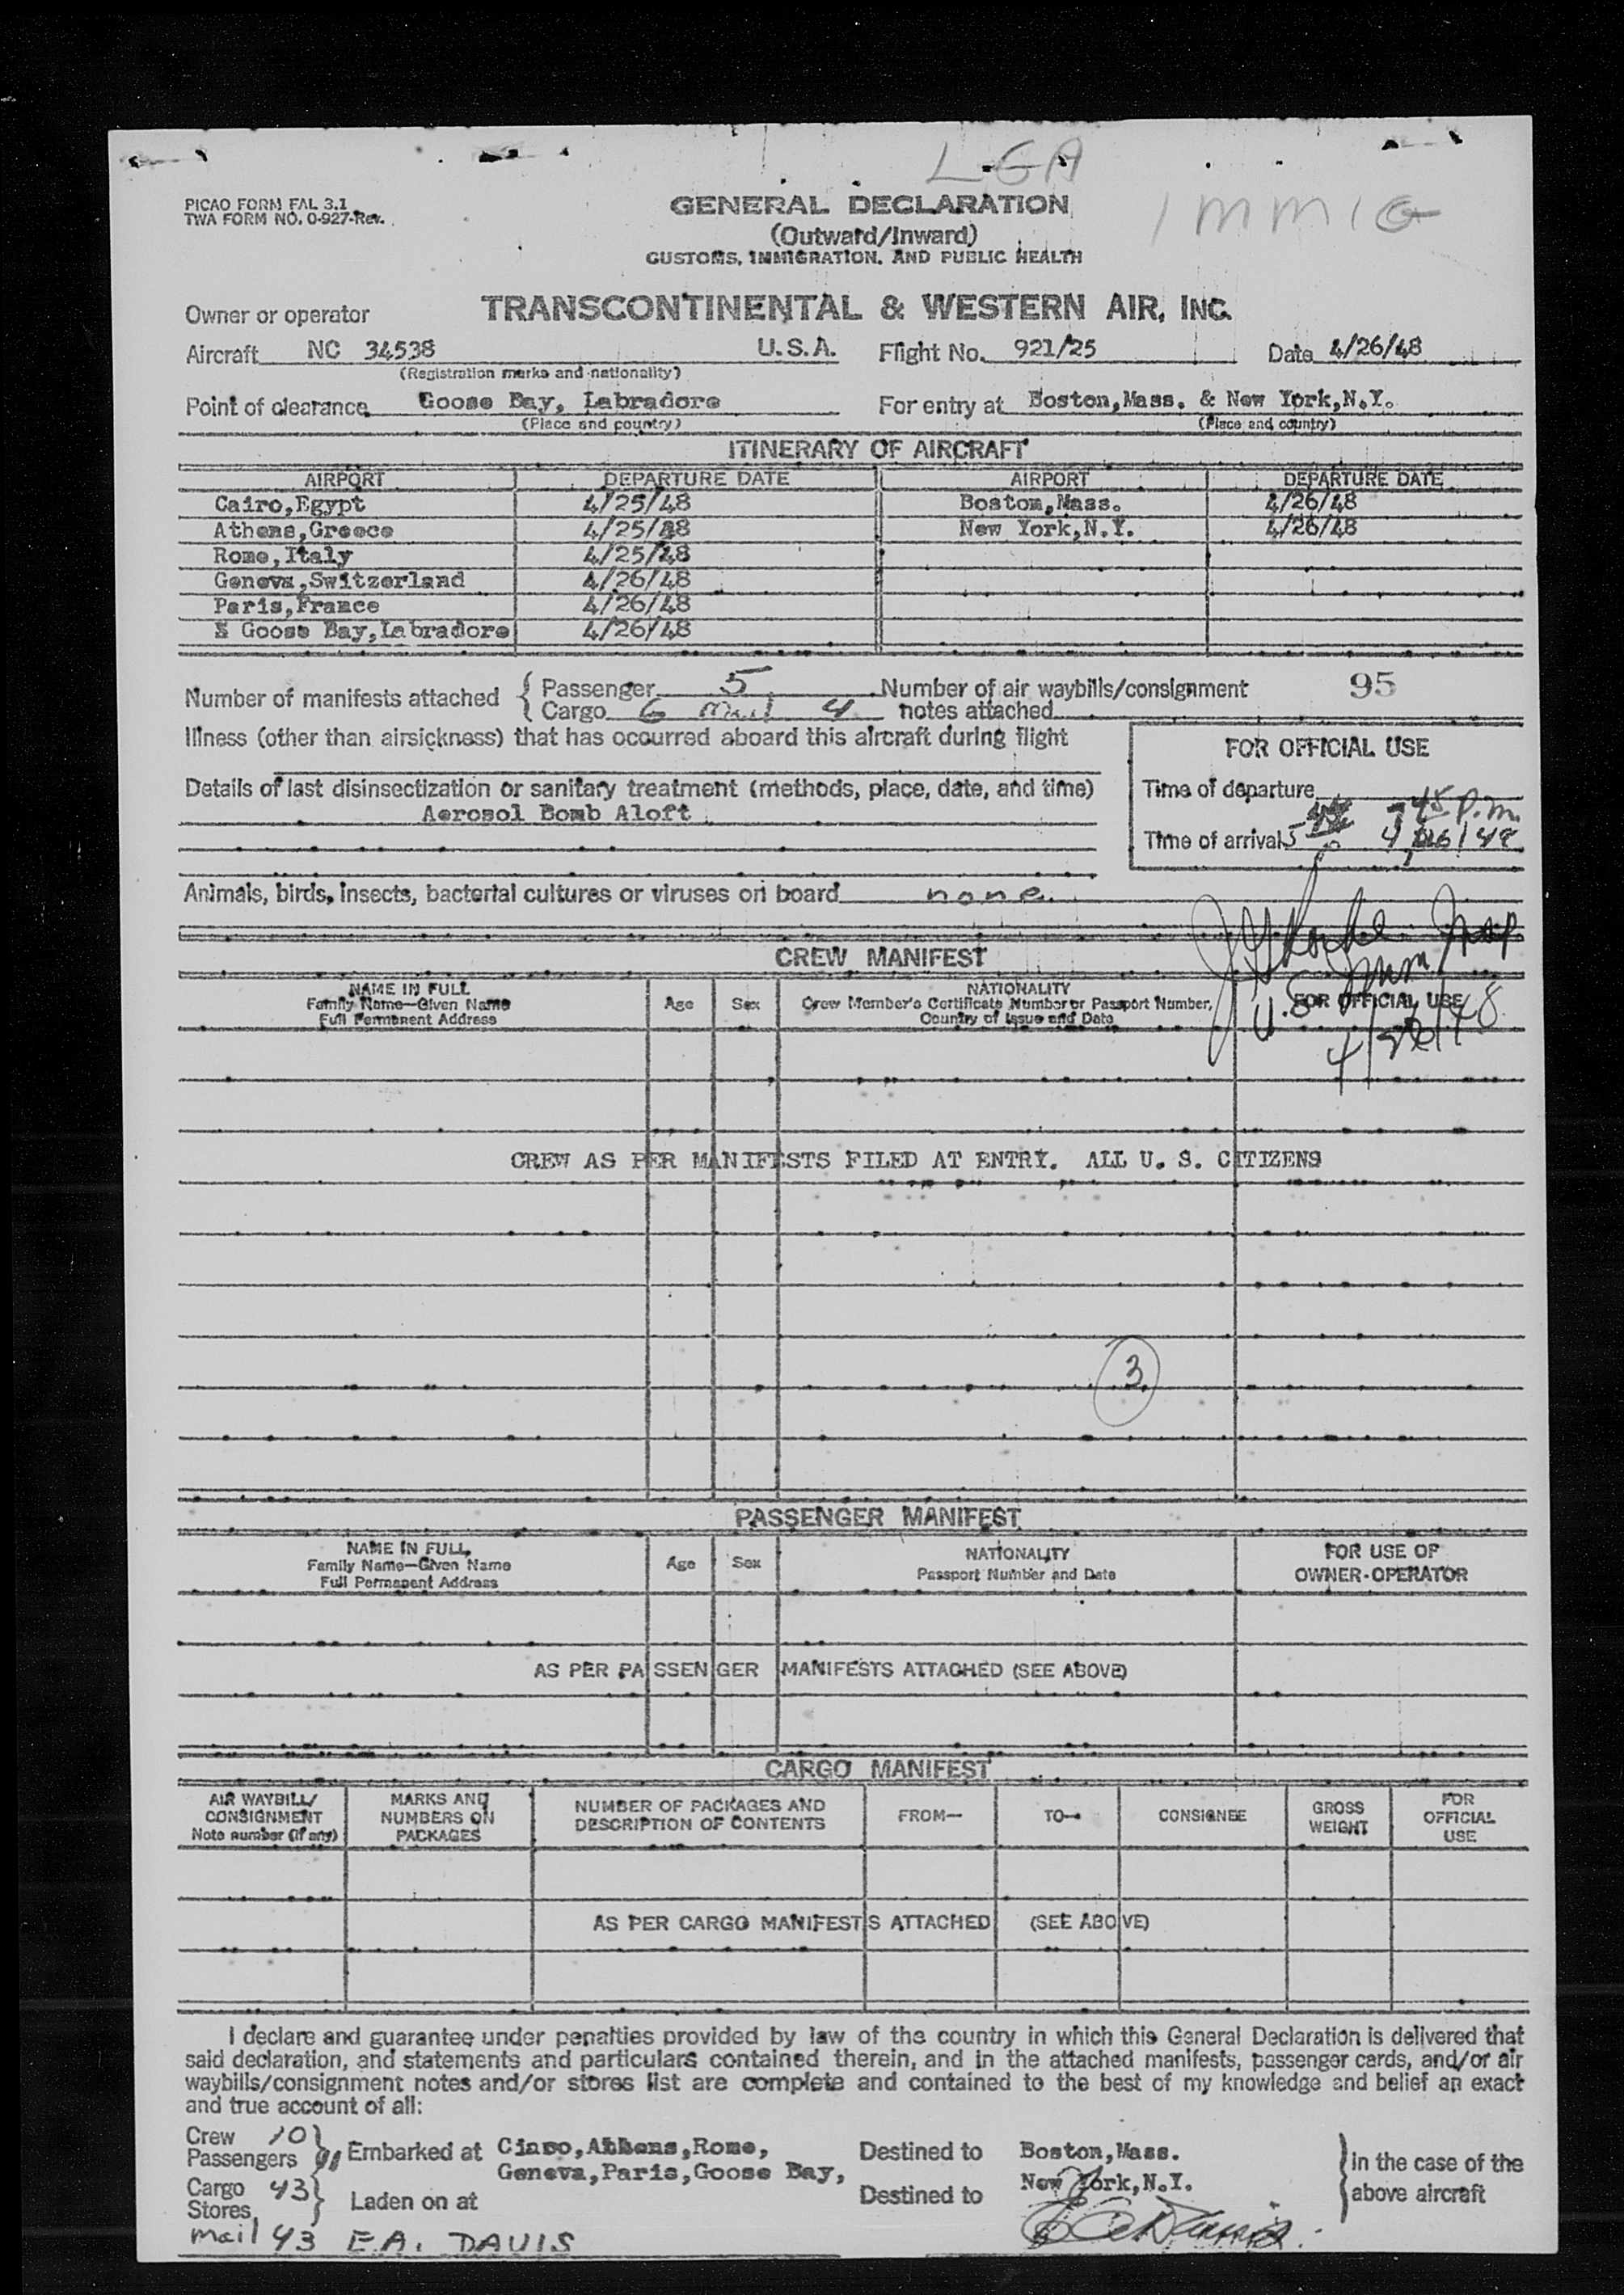 LGA
PICAO FORM FAL 3.1
TWA FORM NO. O-927-Rev.
GENERAL DECLARATION
IMMIG
(Outward/Inward)
CUSTOMS, IMMIGRATION, AND PUBLIC HEALTH
Owner or operator TRANSCONTINENTAL & WESTERN AIR, INC.
Aircraft NC 34538 U.S.A. Flight No. 921/25 Date 4/26/48
(Registration marks and nationality)
Point of clearance Goose Bay, Labradore For entry at Boston,Mass. & New York,N.Y.
(Place and country) (Place and country)
ITINERARY OF AIRCRAFT
AIRPORT DEPARTURE DATE AIRPORT DEPARTURE DATE
Cairo,Egypt 4/25/48 Boston,Mass. 4/26/48
Athens,Greece 4/25/48 New York,N.Y. 4/26/48
Rome,Italy 4/25/48
Geneva,Switzerland 4/26/48
Paris,France 4/26/48
Goose Bay,Labradore 4/26/48
Number of manifests attached { Passenger 5 Number of air waybills/consignment 95
Cargo 6 Mail 4 notes attached
Illness (other than airsickness) that has occurred aboard this aircraft during flight
FOR OFFICIAL USE
Details of last disinsectization or sanitary treatment (methods, place, date, and time)
Time of departure
Aerosol Bomb Aloft
45 P.m.
Time of arrival 4/26/48
Animals, birds, insects, bacterial cultures or viruses on board none
Insp
CREW MANIFEST
U.S. Imm
NAME IN FULL
Family Name—Given Name
Full Permanent Address
Age Sex
NATIONALITY
Crew Member's Certificate Number or Passport Number,
Country of Issue and Date
FOR OFFICIAL USE
4/26/48
CREW AS PER MANIFESTS FILED AT ENTRY. ALL U. S. CITIZENS
3
PASSENGER MANIFEST
NAME IN FULL
Family Name—Given Name
Full Permanent Address
Age Sex
NATIONALITY
Passport Number and Date
FOR USE OF
OWNER-OPERATOR
AS PER PASSENGER MANIFESTS ATTACHED (SEE ABOVE)
CARGO MANIFEST
AIR WAYBILL/
CONSIGNMENT
Note number (if any)
MARKS AND
NUMBERS ON
PACKAGES
NUMBER OF PACKAGES AND
DESCRIPTION OF CONTENTS
FROM—
TO—
CONSIGNEE
GROSS
WEIGHT
FOR
OFFICIAL
USE
AS PER CARGO MANIFESTS ATTACHED (SEE ABOVE)
I declare and guarantee under penalties provided by law of the country in which this General Declaration is delivered that
said declaration, and statements and particulars contained therein, and in the attached manifests, passenger cards, and/or air
waybills/consignment notes and/or stores list are complete and contained to the best of my knowledge and belief an exact
and true account of all:
Crew 10
Passengers
Embarked at Ciaro,Athens,Rome,
Geneva,Paris,Goose Bay,
Destined to Boston,Mass.
New York,N.Y.
In the case of the
above aircraft
Cargo 43
Stores
Laden on at
Destined to
Mail 43 E.A. DAVIS